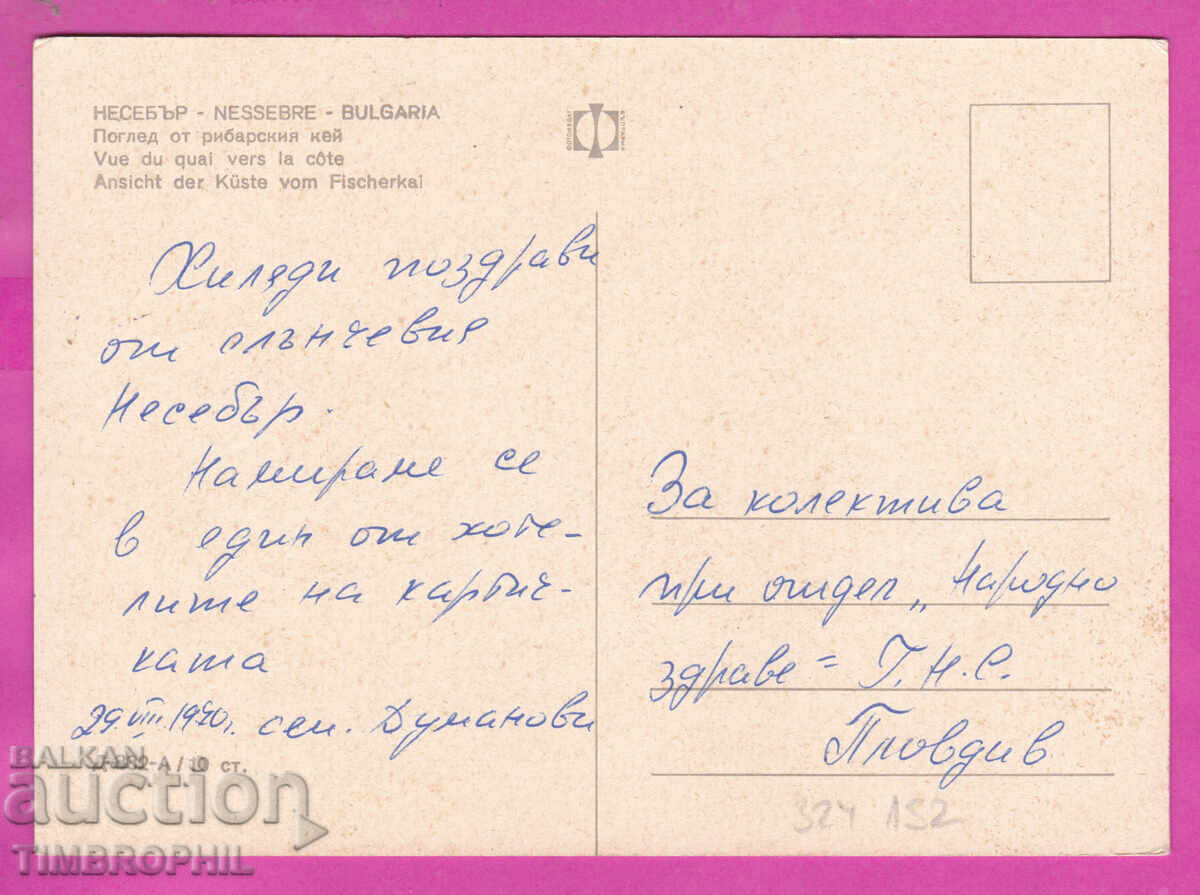 НЕСЕБЪР - NESSEBRE - BULGARIA
Поглед от рибарския кей
Vue du quai vers la côte
Ansicht der Küste vom Fischerkai
Хиляди поздрави
от слънчевия
Несебър.
Намираме се
в един от хоте-
лите на картич-
ката
29.VIII.1970г. сем. Думанови
-А / 10 ст.
За колектива
при отдел „Народно
здраве" Г.Н.С.
Пловдив
324 152
BALKAN
auction
TIMBROPHIL